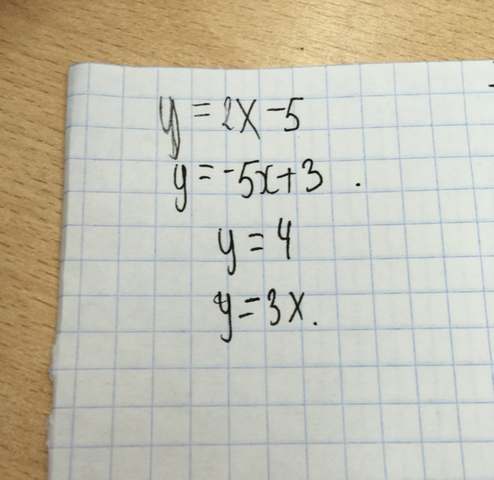 y = 2x - 5
y = -5x + 3 .
y = 4
y = 3x.